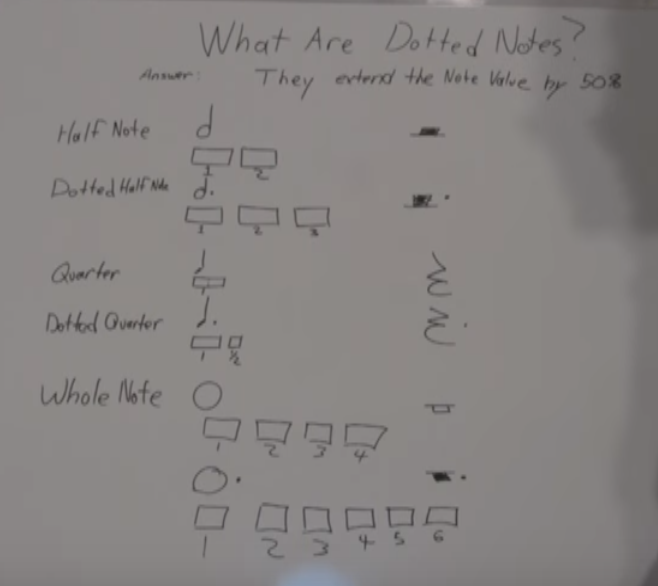 What Are Dotted Notes?
Answer: They extend the Note Value by 50%
Half Note
1 2
Dotted Half Note
1 2 3
Quarter
1
Dotted Quarter
1 1/2
Whole Note
1 2 3 4
1 2 3 4 5 6